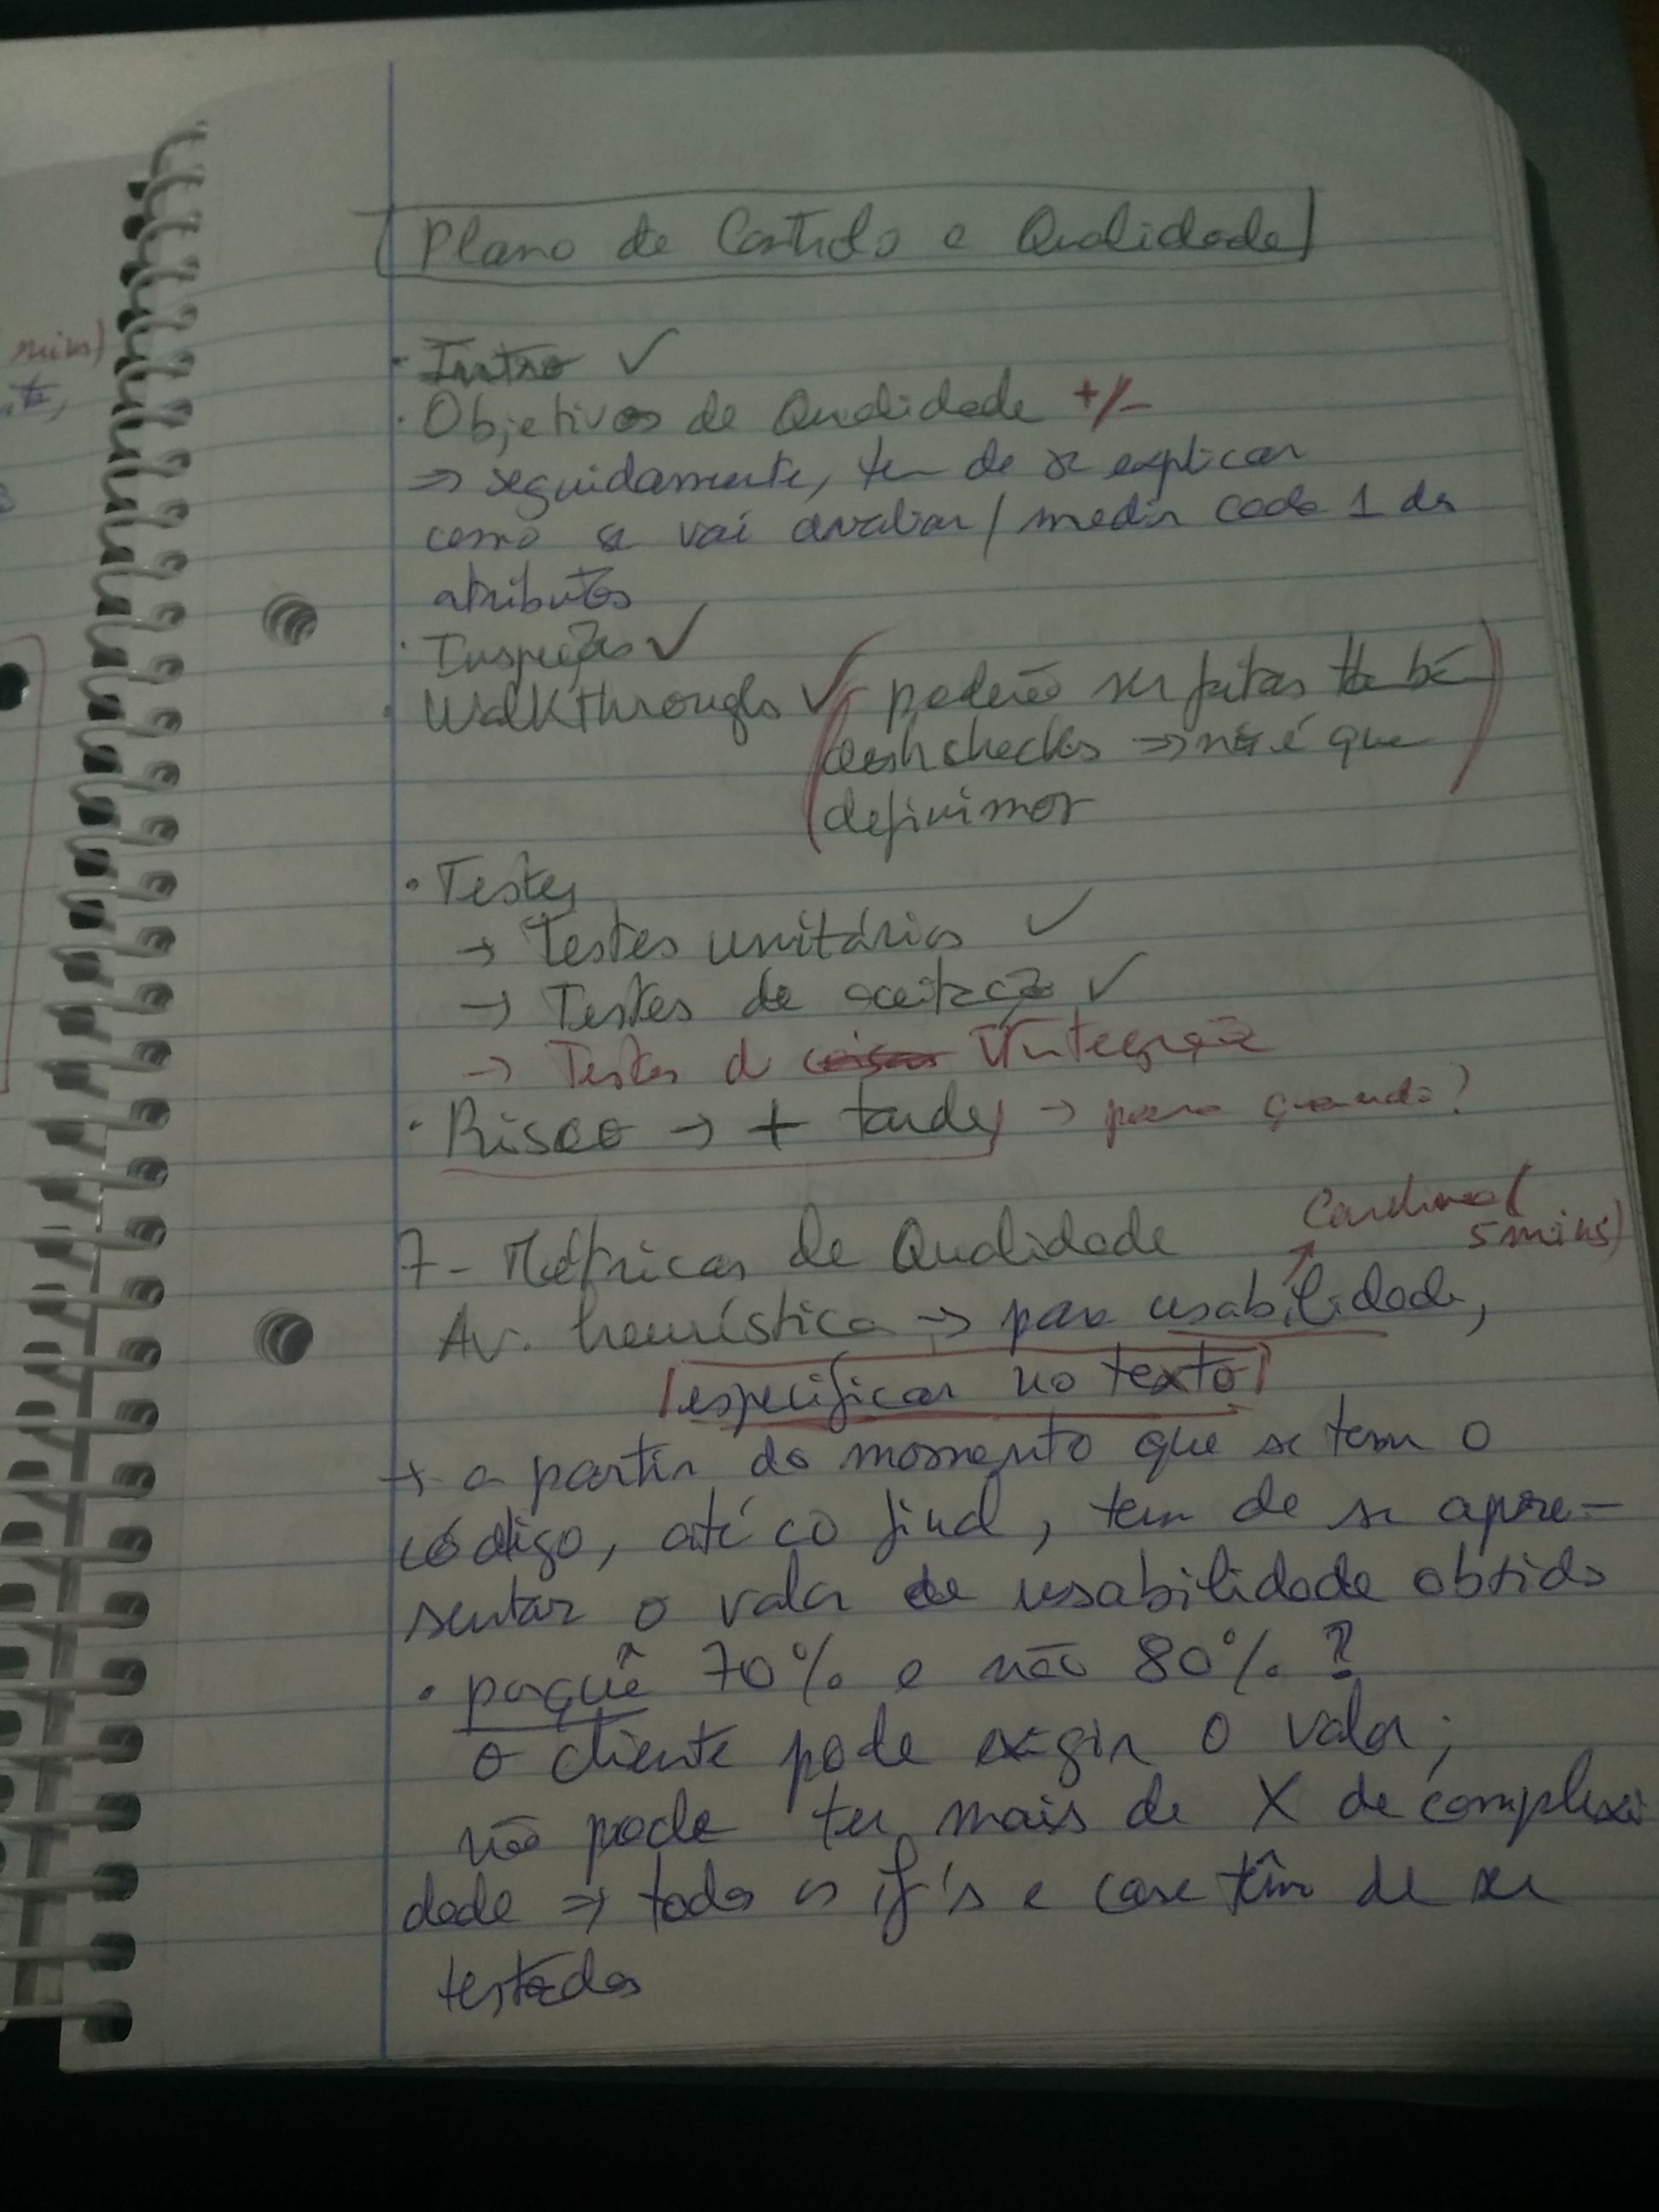 mins)
Plano de Controlo e Qualidade
· Intro ✓
· Objetivos de Qualidade +/-
⇒ seguidamente, tem de se explicar
como se vai avaliar / medir cada 1 dos
atributos
· Inspeções ✓
· Walkthroughs ✓ ( poderão ser feitas também
deskchecks ⇒ nós é que
definimos )
· Testes
→ Testes unitários ✓
→ Testes de aceitação ✓
→ Testes d Integração
· Risco → + tarde → para quando?
Cardinal (
5 mins)
7 - Métricas de Qualidade
Av. heurística → para usabilidade,
especificar no texto
→ a partir do momento que se tem o
código, até ao final, tem de se apre-
sentar o valor de usabilidade obtido
· porquê 70% e não 80% ?
o cliente pode exigir o valor;
não pode ter mais de X de complexi
dade ⇒ todos os if's e case têm de ser
testados